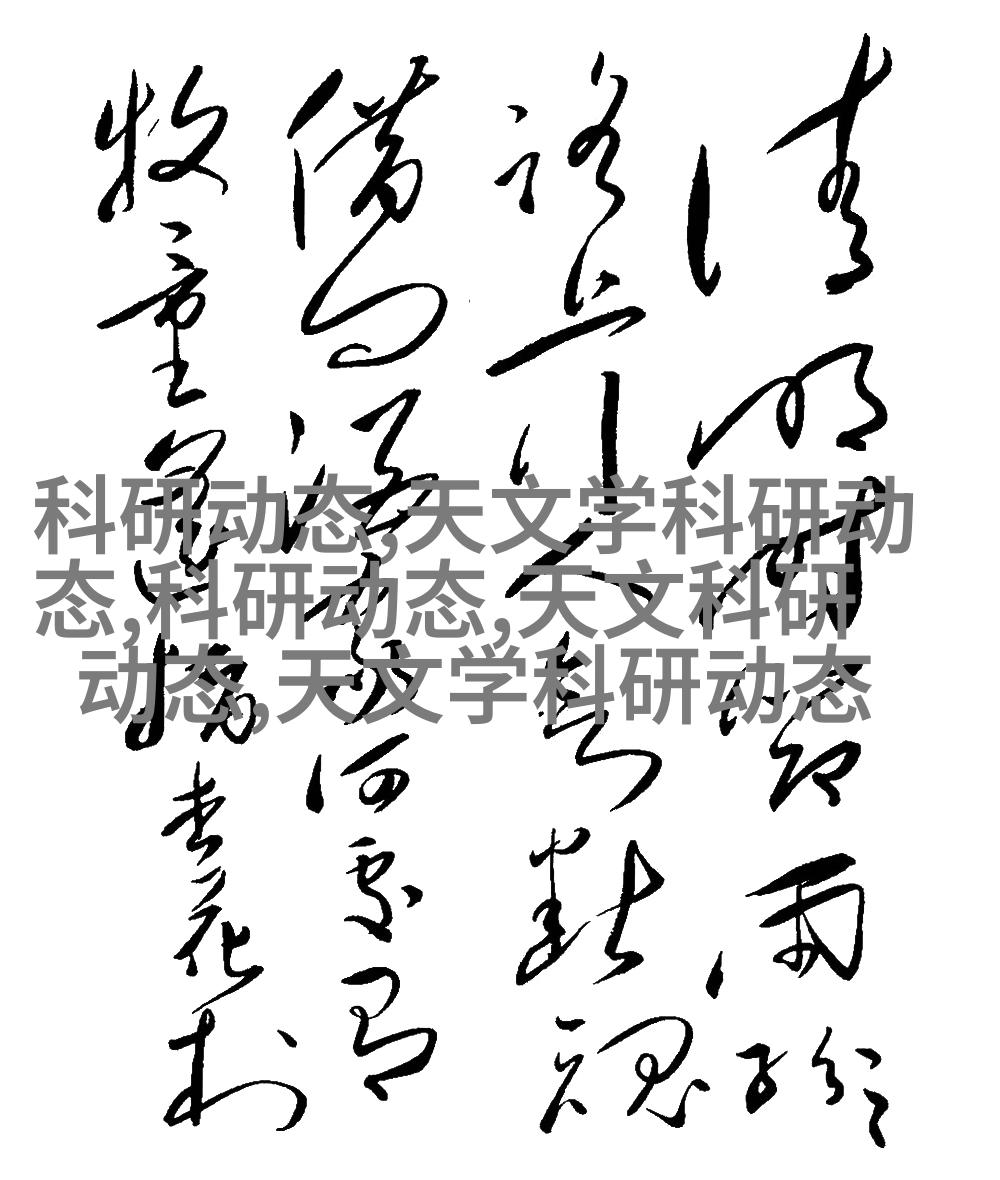 清明時節雨紛紛
路上行人欲斷魂
借問酒家何處有
牧童遙指杏花村
科研动态,天文学科研动
态,科研动态,天文科研
动态,天文学科研动态